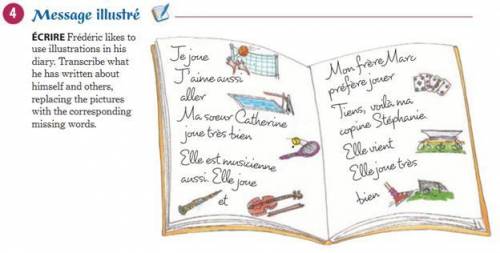 4 Message illustré
ÉCRIRE Frédéric likes to
use illustrations in his
diary. Transcribe what
he has written about
himself and others,
replacing the pictures
with the corresponding
missing words.
Je joue
J'aime aussi
aller
Ma soeur Catherine
joue très bien
Elle est musicienne
aussi. Elle joue
et
Mon frère Marc
préfère jouer
Tiens, voilà ma
copine Stéphanie.
Elle vient
Elle joue très
bien